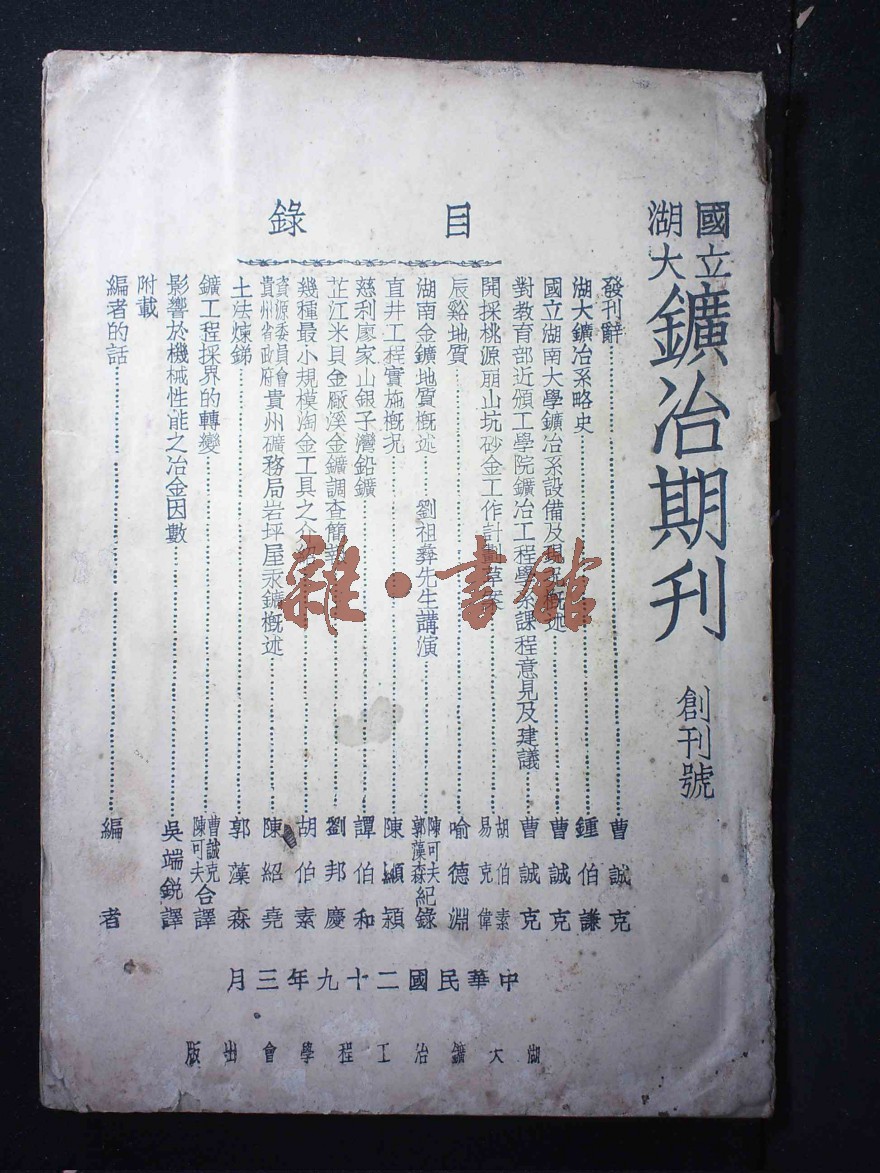 國立
湖大
鑛冶期刊
創刊號
目錄
發刊辭 曹誠克
湖大鑛冶系略史 鍾伯謙
國立湖南大學鑛冶系設備及現況概述 曹誠克
對教育部近頒工學院鑛冶工程學系課程意見及建議 曹誠克
開採桃源崩山坑砂金工作計劃草案 胡伯素 易克偉
辰谿地質 喻德淵
湖南金鑛地質概述 劉祖彝先生講演 陳可夫 郭藻森 紀錄
直井工程實施概況 陳顓穎
慈利廖家山銀子灣鉛鑛 譚伯和
芷江米貝金厰溪金鑛調查簡報 劉邦慶
幾種最小規模淘金工具之介紹 胡伯素
資源委員會 貴州省政府 貴州礦務局岩坪屋汞鑛概述 陳紹堯
土法煉銻 郭藻森
鑛工程採界的轉變 曹誠克 陳可夫 合譯
影響於機械性能之冶金因數 吳端銳譯
附載
編者的話 編者
中華民國二十九年三月
湖大鑛冶工程學會出版
雜·書館